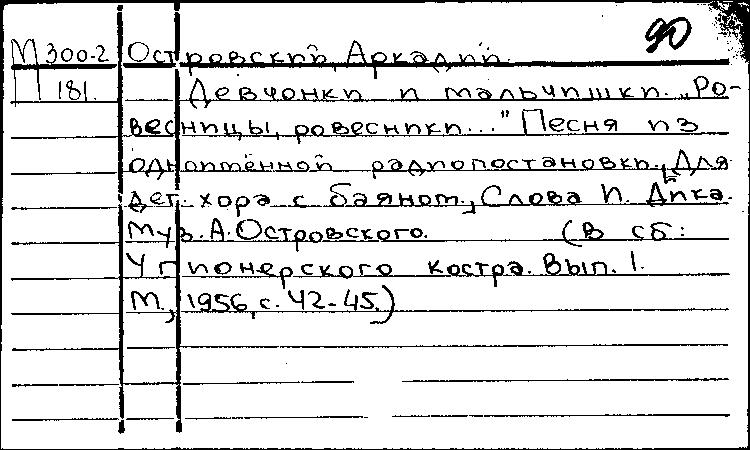 90
М 300-2 Островский, Аркадий.
181. Девчонки и мальчишки. „Ро-
весницы, ровесники..." Песня из
одноимённой радиопостановки. [Для
дет. хора с баяном.] Слова И. Дика.
Муз. А. Островского. (В сб:
У пионерского костра. Вып. 1.
М., 1956, с. 42-45.)